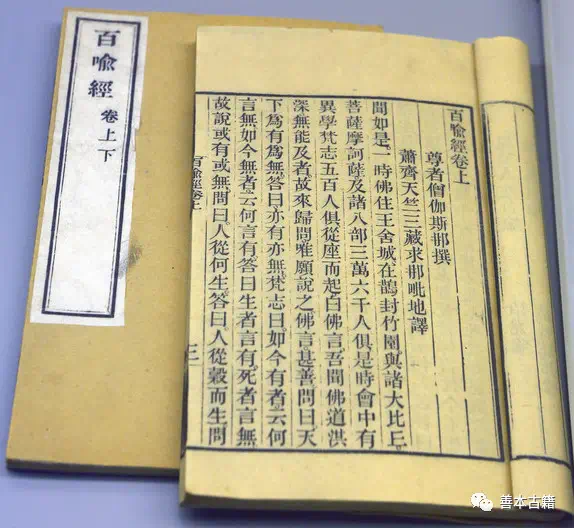 百喻經 卷上下
百喻經卷上
尊者僧伽斯那撰
蕭齊天竺三藏求那毗地譯
聞如是一時佛住王舍城在鵲封竹園與諸大比丘
菩薩摩訶薩及諸八部三萬六千人俱是時會中有
異學梵志五百人俱從座而起白佛言吾聞佛道洪
深無能及者故來歸問唯願說之佛言甚善問曰天
下爲有爲無答曰亦有亦無梵志曰如今有者云何
言無如今無者云何言有答曰生者言有死者言無
故說或有或無問曰人從何生答曰人從穀而生問
百喻經卷上
三
善本古籍